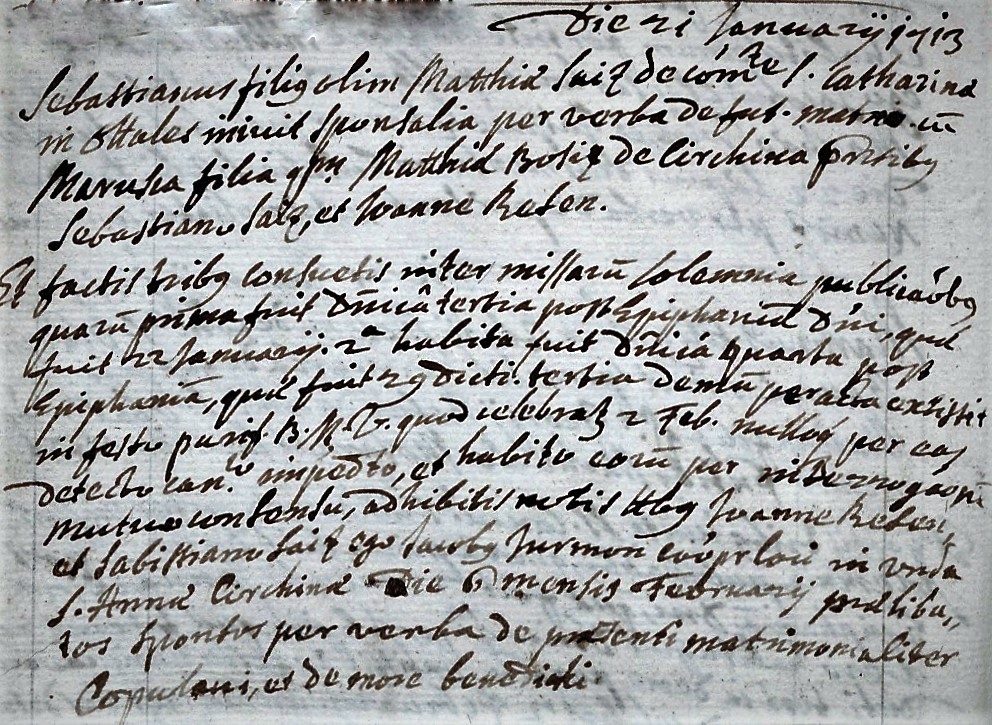 Die 21 Januarij 1713
Sebastianus filiꝯ olim Matthiæ Saiz de com̃te S. Catharina
in Ottales inivit sponsalia per verba de fut. matrio. cū
Marusha filia qm̃ Matthiæ Bosiz de Circhina pr̃tibꝯ
Sebastiano Saiz, et Ioanne Resen.
Et factis tribꝯ consuetis inter missarū solemnia publicāōbꝯ
quarū prima fuit Dn̄icâ tertia post Epiphaniā Dñi, quæ
fuit 22 Januarij. 2ᵃ habita fuit Dn̄icâ quarta post
Epiphaniā, quæ fuit 29 dicti. tertia demū peracta exstitit
in festo purif. B.M.V. quod celebrat 2 Feb. nulloqꝫ per eas
detecto can.co imped̄to, et habito eorū per interrogaōnē
mutuo consensu, adhibitis notis ttibꝯ Ioanne Resen,
et Sabistiano Saiz ego Iacobꝯ Jurmon coōpr loci in
S. Annæ Circhinæ Die 6 mensis Februarij præliba,,
tos sponsos per verba de præsenti matrimonialiter
Copulavi, et de more benedixi.